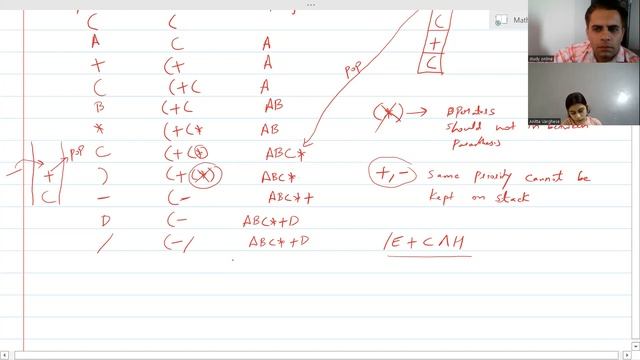 Math
C (
A C A
+ (+ A
C (+C A
B (+C AB
* (+C* AB
C (+C* ABC*
) (+(*) ABC*
- (- ABC*+
D (- ABC*+D
/ (-/ ABC*+D
/E + C ∧ H
POP
+
C
POP
C
+
C
(*) → operators
should not in between
Parathesis
+,- Same priority cannot be
kept on stack
study online
Anitta Varghese